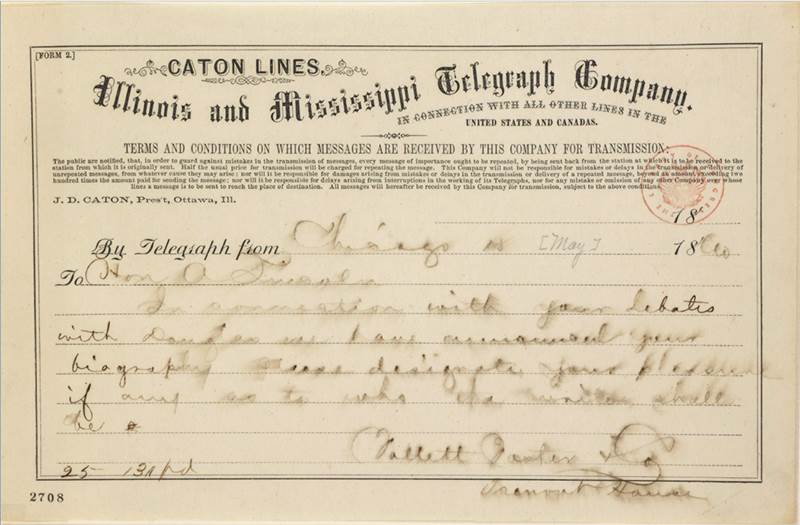 [FORM 2.]
CATON LINES.
Illinois and Mississippi Telegraph Company.
IN CONNECTION WITH ALL OTHER LINES IN THE
UNITED STATES AND CANADAS.
TERMS AND CONDITIONS ON WHICH MESSAGES ARE RECEIVED BY THIS COMPANY FOR TRANSMISSION:
The public are notified, that, in order to guard against mistakes in the transmission of messages, every message of importance ought to be repeated, by being sent back from the station at which it is to be received to the
station from which it is originally sent. Half the usual price for transmission will be charged for repeating the message. This Company will not be responsible for mistakes or delays in the transmission or delivery of
unrepeated messages, from whatever cause they may arise; nor will it be responsible for damages arising from mistakes or delays in the transmission or delivery of a repeated message, beyond an amount exceeding two
hundred times the amount paid for sending the message; nor will it be responsible for delays arising from interruptions in the working of its Telegraphs, nor for any mistake or omission of any other Company over whose
lines a message is to be sent to reach the place of destination. All messages will hereafter be received by this Company for transmission, subject to the above conditions.
J. D. CATON, Pres't, Ottawa, Ill.
18
By Telegraph from Chicago 18 [May] 1860
To Hon A Lincoln
In connection with your debates
with Douglas we have announced your
biography Please designate your pleasure
if any as to who the writer shall
be
25 pd
Follett Foster & Co
Tremont House
2708